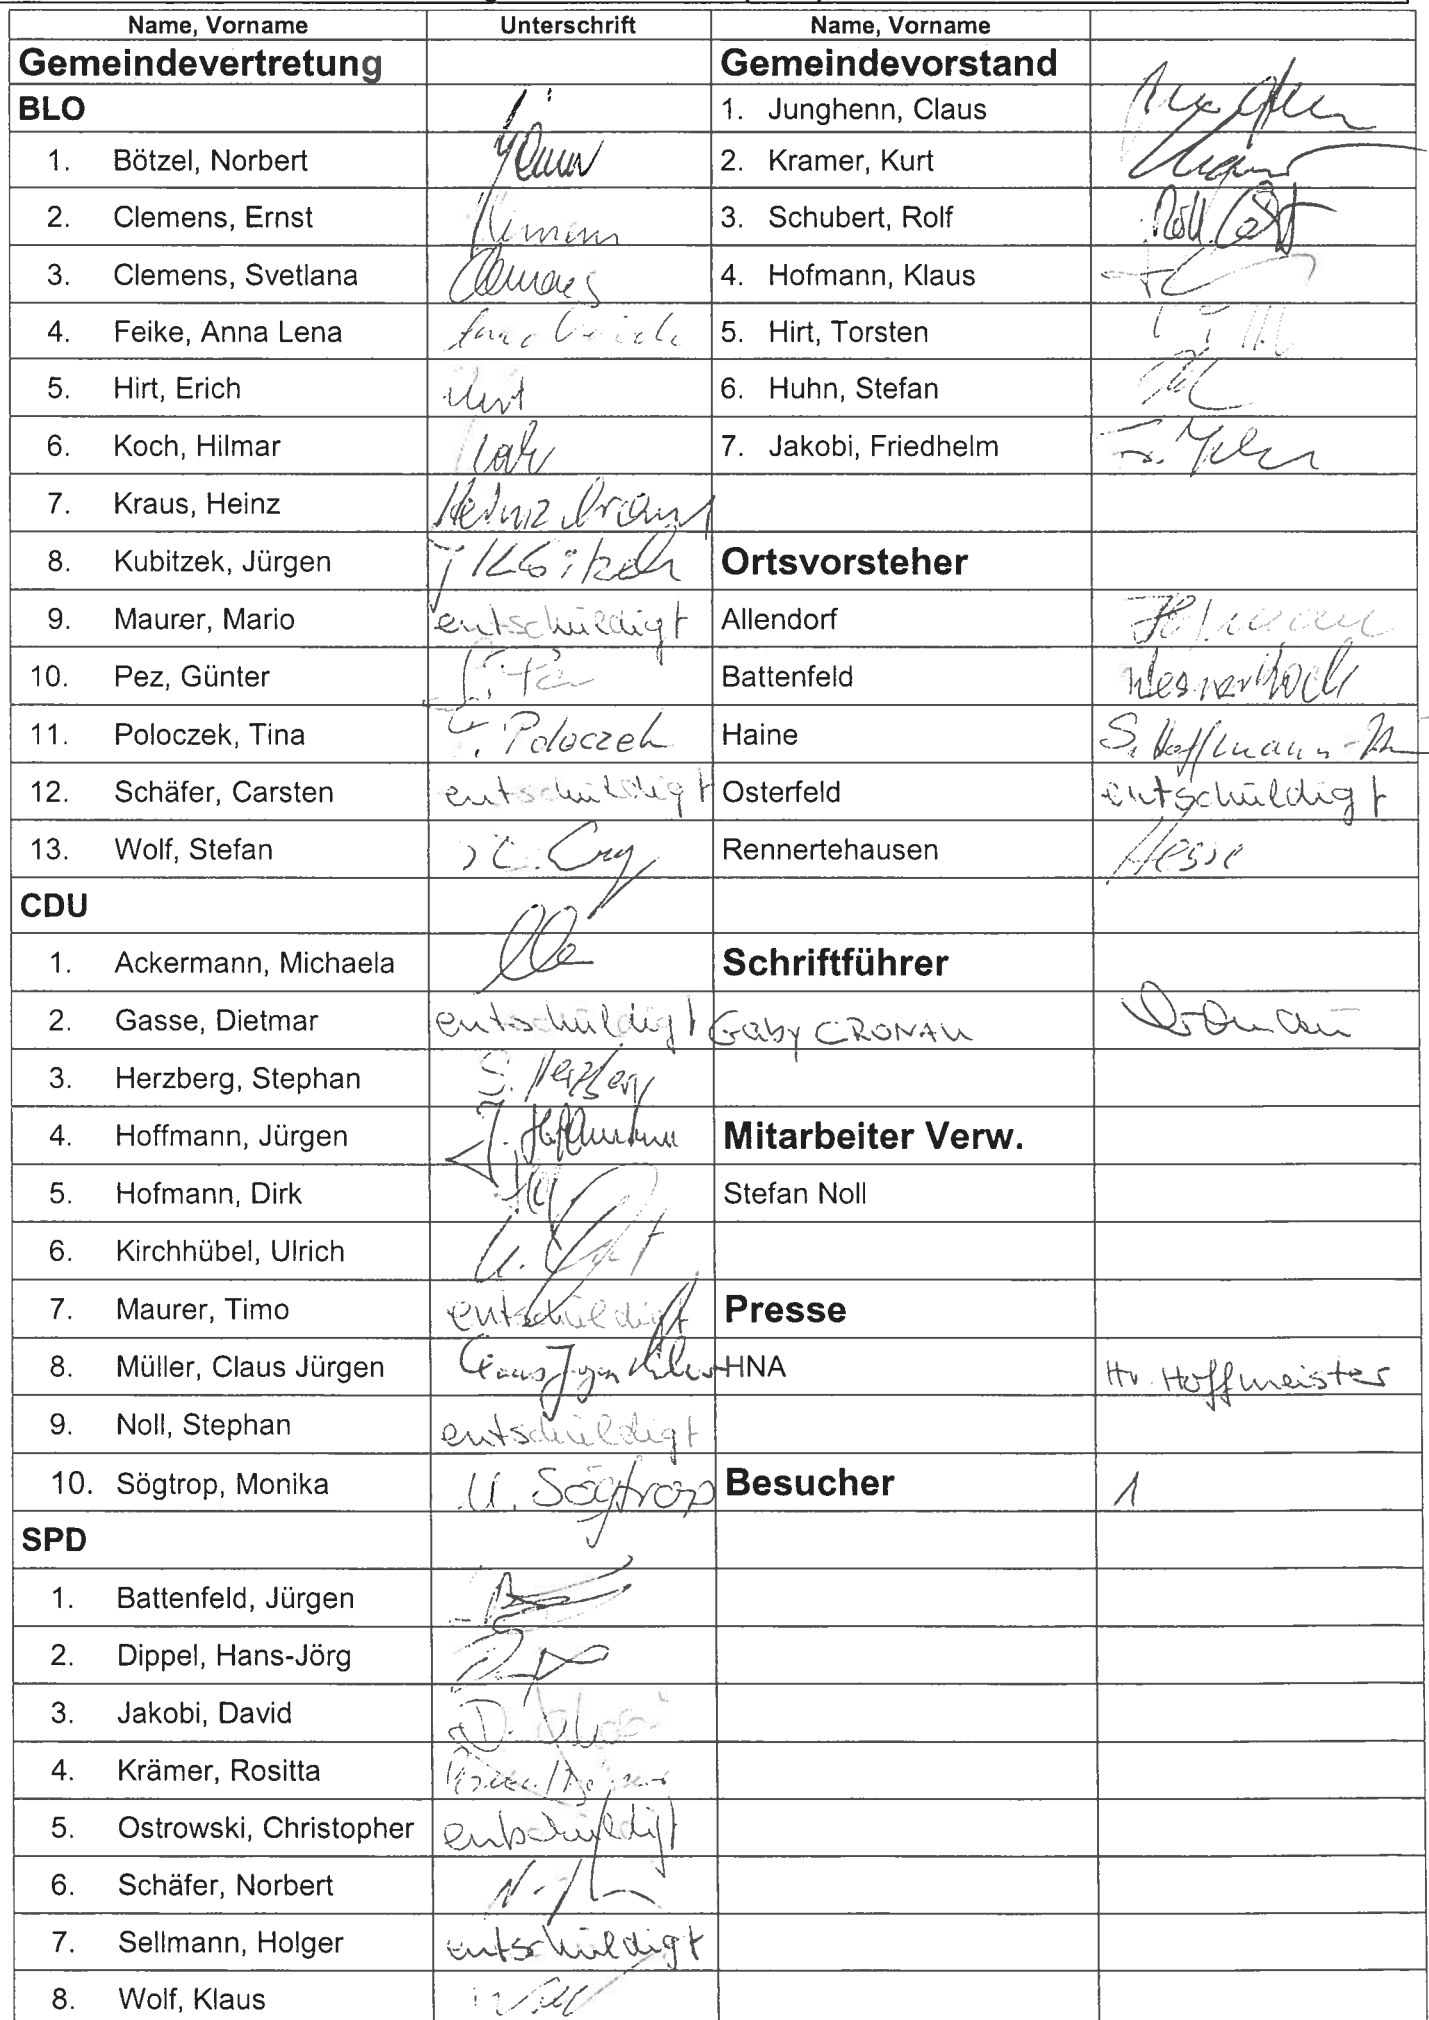 Name, Vorname Unterschrift Name, Vorname
Gemeindevertretung Gemeindevorstand
BLO 1. Junghenn, Claus
1. Bötzel, Norbert 2. Kramer, Kurt
2. Clemens, Ernst Clemens 3. Schubert, Rolf
3. Clemens, Svetlana Clemens 4. Hofmann, Klaus
4. Feike, Anna Lena 5. Hirt, Torsten
5. Hirt, Erich Hirt 6. Huhn, Stefan
6. Koch, Hilmar Koch 7. Jakobi, Friedhelm
7. Kraus, Heinz Heinz Kraus
8. Kubitzek, Jürgen J Kubitzek Ortsvorsteher
9. Maurer, Mario entschuldigt Allendorf Hofmann
10. Pez, Günter Battenfeld Werner Koch
11. Poloczek, Tina T. Poloczek Haine
12. Schäfer, Carsten entschuldigt Osterfeld entschuldigt
13. Wolf, Stefan Rennertehausen Hesse
CDU
1. Ackermann, Michaela Schriftführer
2. Gasse, Dietmar entschuldigt Gaby CRONAU Cronau
3. Herzberg, Stephan S. Herzberg
4. Hoffmann, Jürgen J. Hoffmann Mitarbeiter Verw.
5. Hofmann, Dirk Stefan Noll
6. Kirchhübel, Ulrich
7. Maurer, Timo entschuldigt Presse
8. Müller, Claus Jürgen Claus Jürgen Müller HNA Hr. Hoffmeister
9. Noll, Stephan entschuldigt
10. Sögtrop, Monika M. Sögtrop Besucher 1
SPD
1. Battenfeld, Jürgen
2. Dippel, Hans-Jörg
3. Jakobi, David D. Jakobi
4. Krämer, Rositta
5. Ostrowski, Christopher entschuldigt
6. Schäfer, Norbert
7. Sellmann, Holger entschuldigt
8. Wolf, Klaus Wolf